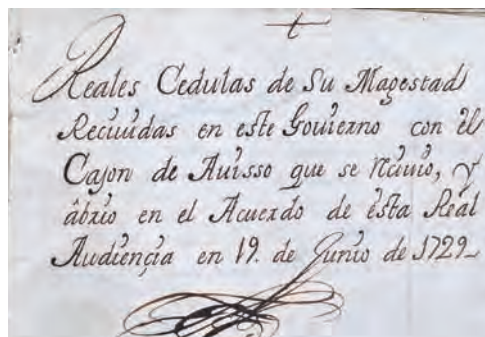 Reales Cedulas de Su Magestad
Reciuidas en este Gouierno con el
Cajon de Auisso que se reciuio, y
abrio en el Acuerdo de esta Real
Audiençia en 19. de Junio de 1729